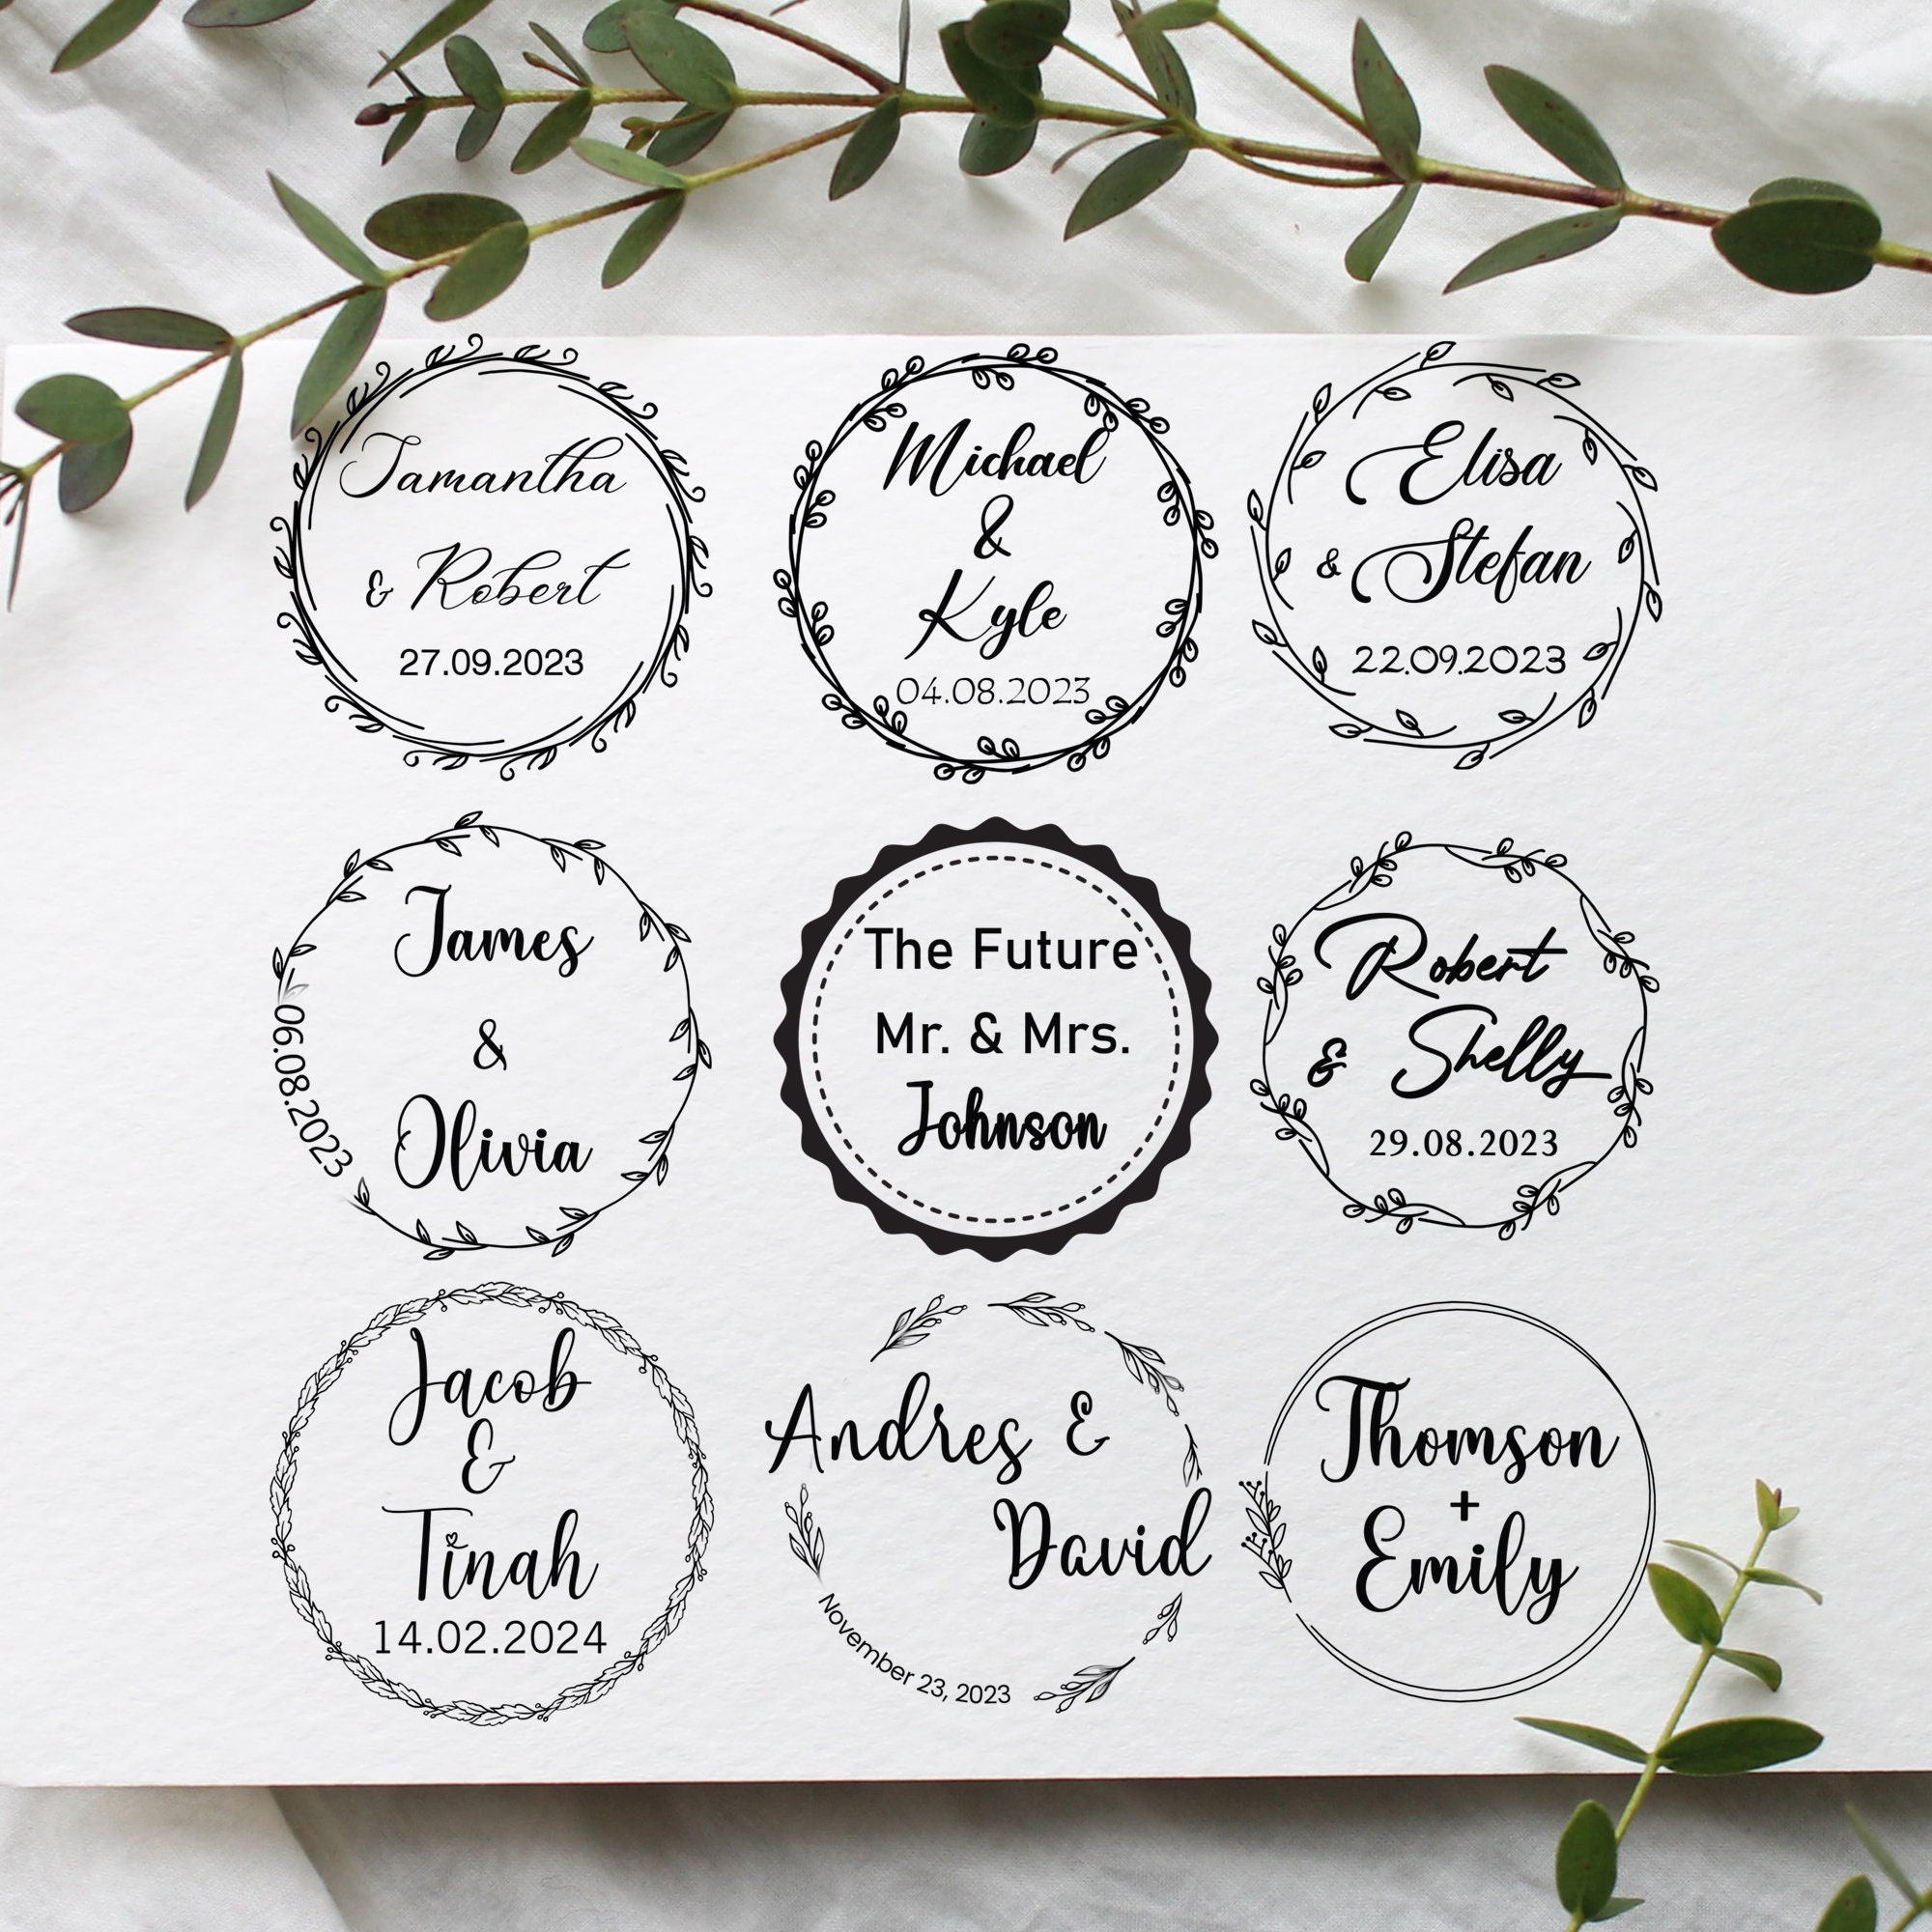 Samantha
& Robert
27.09.2023
Michael
&
Kyle
04.08.2023
Elisa
& Stefan
22.09.2023
James
&
Olivia
06.08.2023
The Future
Mr. & Mrs.
Johnson
Robert
& Shelly
29.08.2023
Jacob
&
Tinah
14.02.2024
Andres &
David
November 23, 2023
Thomson
+
Emily